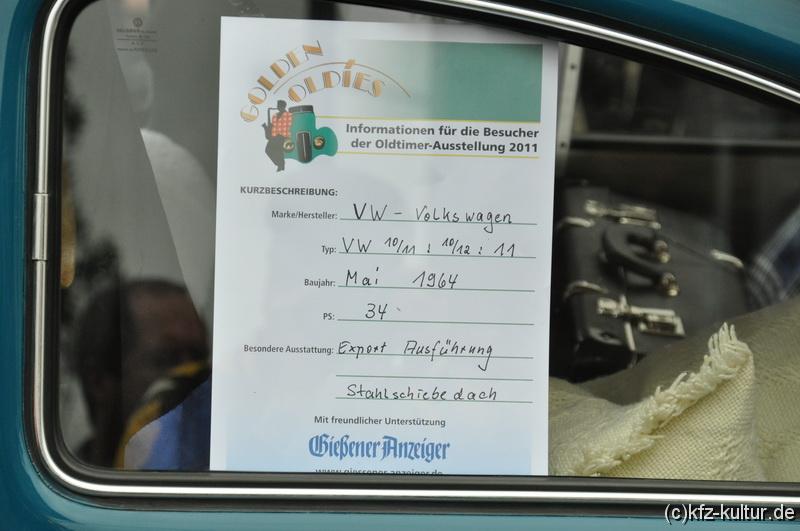 GOLDEN
OLDIES
Informationen für die Besucher
der Oldtimer-Ausstellung 2011
KURZBESCHREIBUNG:
Marke/Hersteller: VW - Volkswagen
Typ: VW 10/11 : 10/12 : 11
Baujahr: Mai 1964
PS: 34
Besondere Ausstattung: Export Ausführung
Stahlschiebedach
Mit freundlicher Unterstützung
Gießener Anzeiger
www.giessener-anzeiger.de
(c)kfz-kultur.de